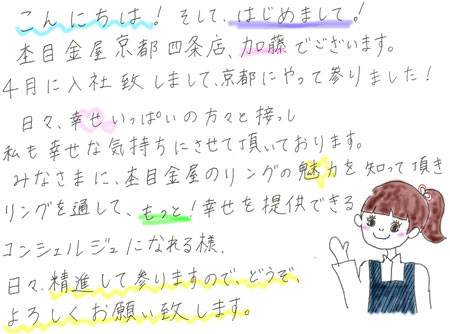 こんにちは！そして、はじめまして！
杢目金屋京都四条店、加藤でございます。
4月に入社致しまして、京都にやって参りました！
日々、幸せいっぱいの方々と接っし
私も幸せな気持ちにさせて頂いております。
みなさまに、杢目金屋のリングの魅力を知って頂き
リングを通して、もっと！幸せを提供できる
コンシェルジュになれる様、
日々、精進して参りますので、どうぞ、
よろしくお願い致します。